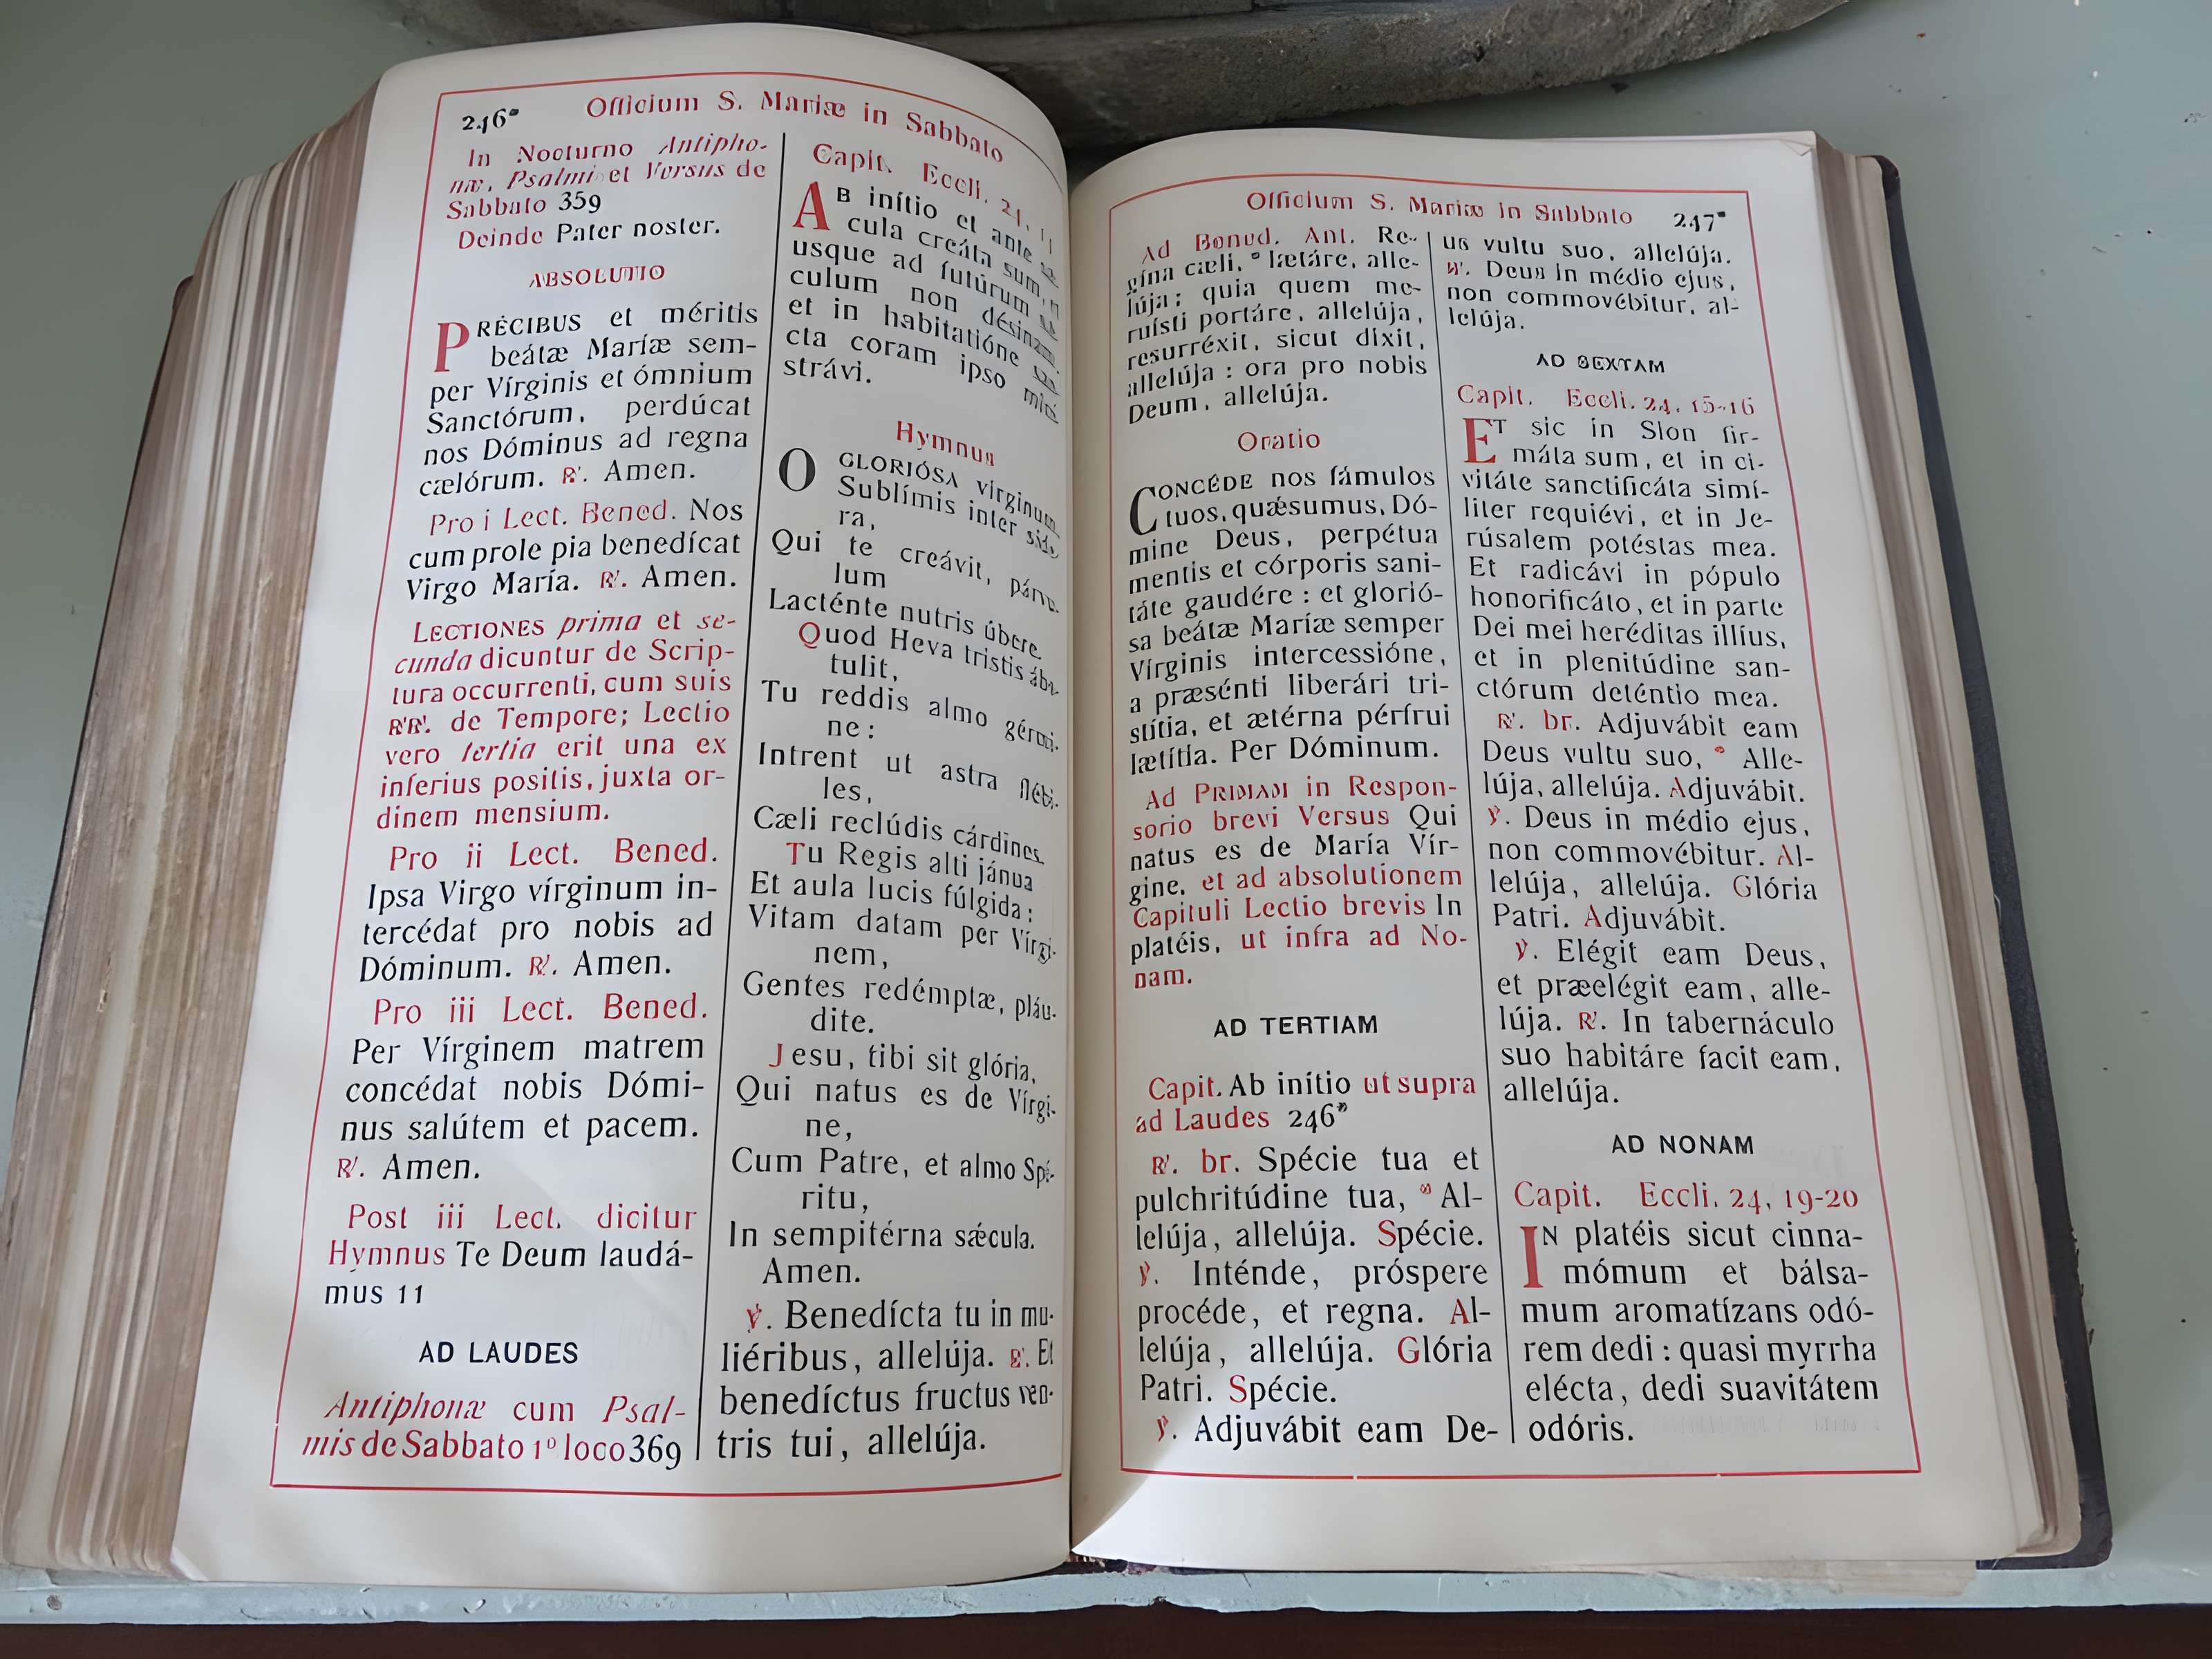 246*
Officium S. Mariæ in Sabbato
In Nocturno Antipho-
næ, Psalmi et Versus de
Sabbato 359
Deinde Pater noster.
ABSOLUTIO
PRÉCIBUS et méritis
beátæ Maríæ sem-
per Vírginis et ómnium
Sanctórum, perdúcat
nos Dóminus ad regna
cælórum. ℟. Amen.
Pro i Lect. Bened. Nos
cum prole pia benedícat
Virgo María. ℟. Amen.
LECTIONES prima et se-
cunda dicuntur de Scrip-
tura occurrenti, cum suis
℟℟. de Tempore; Lectio
vero tertia erit una ex
inferius positis, juxta or-
dinem mensium.
Pro ii Lect. Bened.
Ipsa Virgo vírginum in-
tercédat pro nobis ad
Dóminum. ℟. Amen.
Pro iii Lect. Bened.
Per Vírginem matrem
concédat nobis Dómi-
nus salútem et pacem.
℟. Amen.
Post iii Lect. dicitur
Hymnus Te Deum laudá-
mus 11
AD LAUDES
Antiphonæ cum Psal-
mis de Sabbato 1º loco 369
Capit. Eccli. 24,
AB inítio et ante
cula creáta sum,
usque ad futúrum
culum non désinam,
et in habitatióne
cta coram ipso
strávi.
Hymnus
O GLORIÓSA vírginum
Sublímis inter síde-
ra,
Qui te creávit, párvu-
lum
Lacténte nutris úbere.
Quod Heva tristis ábs-
tulit,
Tu reddis almo gérmi-
ne:
Intrent ut astra flébi-
les,
Cæli reclúdis cárdines.
Tu Regis alti jánua
Et aula lucis fúlgida:
Vitam datam per Vírgi-
nem,
Gentes redémptæ, pláu-
dite.
Jesu, tibi sit glória,
Qui natus es de Vírgi-
ne,
Cum Patre, et almo Spí-
ritu,
In sempitérna sǽcula.
Amen.
℣. Benedícta tu in mu-
liéribus, allelúja. ℟. Et
benedíctus fructus ven-
tris tui, allelúja.
Officium S. Mariæ in Sabbato
247*
Ad Bened. Ant. Re-
gína cæli, * lætáre, alle-
lúja; quia quem me-
ruísti portáre, allelúja,
resurréxit, sicut dixit,
allelúja : ora pro nobis
Deum, allelúja.
Oratio
CONCÉDE nos fámulos
tuos, quǽsumus, Dó-
mine Deus, perpétua
mentis et córporis sani-
táte gaudére : et glorió-
sa beátæ Maríæ semper
Vírginis intercessióne,
a præsénti liberári tri-
stítia, et ætérna pérfrui
lætítia. Per Dóminum.
Ad PRIMAM in Respon-
sorio brevi Versus Qui
natus es de María Vír-
gine, et ad absolutionem
Capituli Lectio brevis In
platéis, ut infra ad No-
nam.
AD TERTIAM
Capit. Ab inítio ut supra
ad Laudes 246*
℟. br. Spécie tua et
pulchritúdine tua, * Al-
lelúja, allelúja. Spécie.
℣. Inténde, próspere
procéde, et regna. Al-
lelúja, allelúja. Glória
Patri. Spécie.
℣. Adjuvábit eam De-
us vultu suo, allelúja.
℟. Deus in médio ejus,
non commovébitur, al-
lelúja.
AD SEXTAM
Capit. Eccli. 24, 15-16
ET sic in Sion fir-
máta sum, et in ci-
vitáte sanctificáta simí-
liter requiévi, et in Je-
rúsalem potéstas mea.
Et radicávi in pópulo
honorificáto, et in parte
Dei mei heréditas illíus,
et in plenitúdine san-
ctórum deténtio mea.
℟. br. Adjuvábit eam
Deus vultu suo, * Alle-
lúja, allelúja. Adjuvábit.
℣. Deus in médio ejus,
non commovébitur. Al-
lelúja, allelúja. Glória
Patri. Adjuvábit.
℣. Elégit eam Deus,
et præelégit eam, alle-
lúja. ℟. In tabernáculo
suo habitáre facit eam,
allelúja.
AD NONAM
Capit. Eccli. 24, 19-20
IN platéis sicut cinna-
mómum et bálsa-
mum aromatízans odó-
rem dedi : quasi myrrha
elécta, dedi suavitátem
odóris.